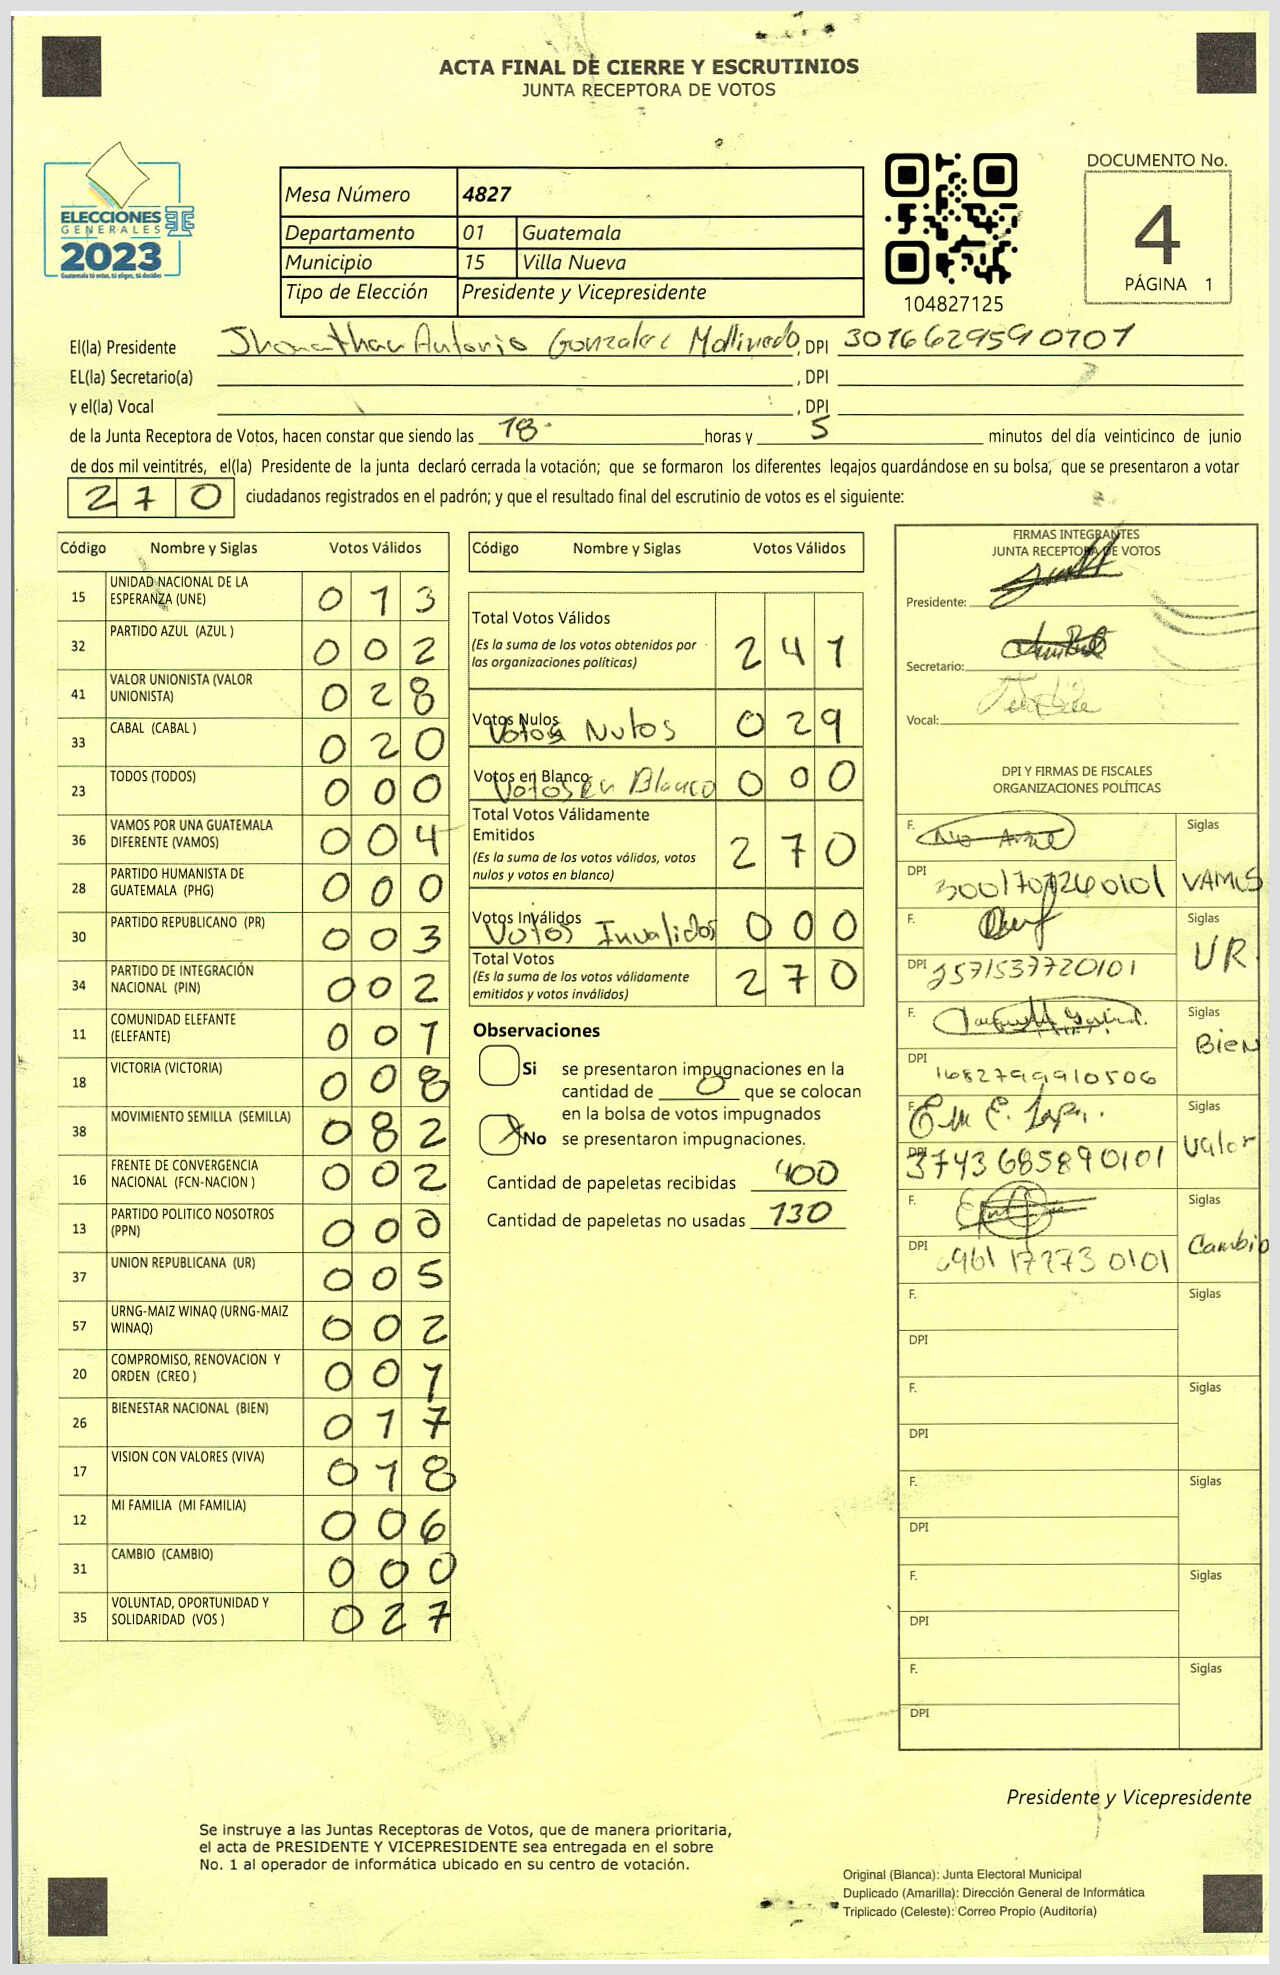 ACTA FINAL DE CIERRE Y ESCRUTINIOS
JUNTA RECEPTORA DE VOTOS
ELECCIONES
GENERALES
2023
Guatemala tú votas, tú eliges, tú decides
Mesa Número 4827
Departamento 01 Guatemala
Municipio 15 Villa Nueva
Tipo de Elección Presidente y Vicepresidente
104827125
DOCUMENTO No.
4
PÁGINA 1
El(la) Presidente Jhonathan Antonio Gonzalez Mollinedo, DPI 3016629590101
EL(la) Secretario(a) , DPI
y el(la) Vocal , DPI
de la Junta Receptora de Votos, hacen constar que siendo las 18 horas y 5 minutos del día veinticinco de junio
de dos mil veintitrés, el(la) Presidente de la junta declaró cerrada la votación; que se formaron los diferentes legajos guardándose en su bolsa; que se presentaron a votar
270 ciudadanos registrados en el padrón; y que el resultado final del escrutinio de votos es el siguiente:
Código Nombre y Siglas Votos Válidos
15 UNIDAD NACIONAL DE LA ESPERANZA (UNE) 013
32 PARTIDO AZUL (AZUL ) 002
41 VALOR UNIONISTA (VALOR UNIONISTA) 028
33 CABAL (CABAL ) 020
23 TODOS (TODOS) 000
36 VAMOS POR UNA GUATEMALA DIFERENTE (VAMOS) 004
28 PARTIDO HUMANISTA DE GUATEMALA (PHG) 000
30 PARTIDO REPUBLICANO (PR) 003
34 PARTIDO DE INTEGRACIÓN NACIONAL (PIN) 002
11 COMUNIDAD ELEFANTE (ELEFANTE) 001
18 VICTORIA (VICTORIA) 008
38 MOVIMIENTO SEMILLA (SEMILLA) 082
16 FRENTE DE CONVERGENCIA NACIONAL (FCN-NACION ) 002
13 PARTIDO POLITICO NOSOTROS (PPN) 000
37 UNION REPUBLICANA (UR) 005
57 URNG-MAIZ WINAQ (URNG-MAIZ WINAQ) 002
20 COMPROMISO, RENOVACION Y ORDEN (CREO ) 001
26 BIENESTAR NACIONAL (BIEN) 017
17 VISION CON VALORES (VIVA) 018
12 MI FAMILIA (MI FAMILIA) 006
31 CAMBIO (CAMBIO) 000
35 VOLUNTAD, OPORTUNIDAD Y SOLIDARIDAD (VOS ) 027
Código Nombre y Siglas Votos Válidos
Total Votos Válidos
(Es la suma de los votos obtenidos por
las organizaciones políticas) 241
Votos Nulos Votos Nulos 029
Votos en Blanco Votos en Blanco 000
Total Votos Válidamente
Emitidos
(Es la suma de los votos válidos, votos
nulos y votos en blanco) 270
Votos Inválidos Votos Invalidos 000
Total Votos
(Es la suma de los votos válidamente
emitidos y votos inválidos) 270
Observaciones
Si se presentaron impugnaciones en la
cantidad de 0 que se colocan
en la bolsa de votos impugnados
X No se presentaron impugnaciones.
Cantidad de papeletas recibidas 400
Cantidad de papeletas no usadas 130
FIRMAS INTEGRANTES
JUNTA RECEPTORA DE VOTOS
Presidente:
Secretario:
Vocal:
DPI Y FIRMAS DE FISCALES
ORGANIZACIONES POLÍTICAS
F. Siglas
DPI VAMOS
F. Siglas
DPI 2571537720101 UR
F. Siglas
DPI 1682799910506 Bien
F. Siglas
DPI 3743685890101 Valor
F. Siglas
DPI Cambio
F. Siglas
DPI
F. Siglas
DPI
F. Siglas
DPI
F. Siglas
DPI
F. Siglas
DPI
Presidente y Vicepresidente
Se instruye a las Juntas Receptoras de Votos, que de manera prioritaria,
el acta de PRESIDENTE Y VICEPRESIDENTE sea entregada en el sobre
No. 1 al operador de informática ubicado en su centro de votación.
Original (Blanca): Junta Electoral Municipal
Duplicado (Amarilla): Dirección General de Informática
Triplicado (Celeste): Correo Propio (Auditoría)